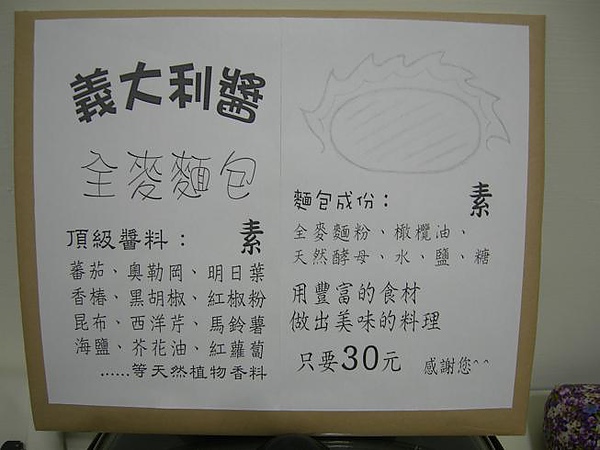 義大利醬
全麥麵包
頂級醬料：
素
蕃茄、奧勒岡、明日葉
香椿、黑胡椒、紅椒粉
昆布、西洋芹、馬鈴薯
海鹽、芥花油、紅蘿蔔
......等天然植物香料
麵包成份：
素
全麥麵粉、橄欖油、
天然酵母、水、鹽、糖
用豐富的食材
做出美味的料理
只要30元
感謝您^^